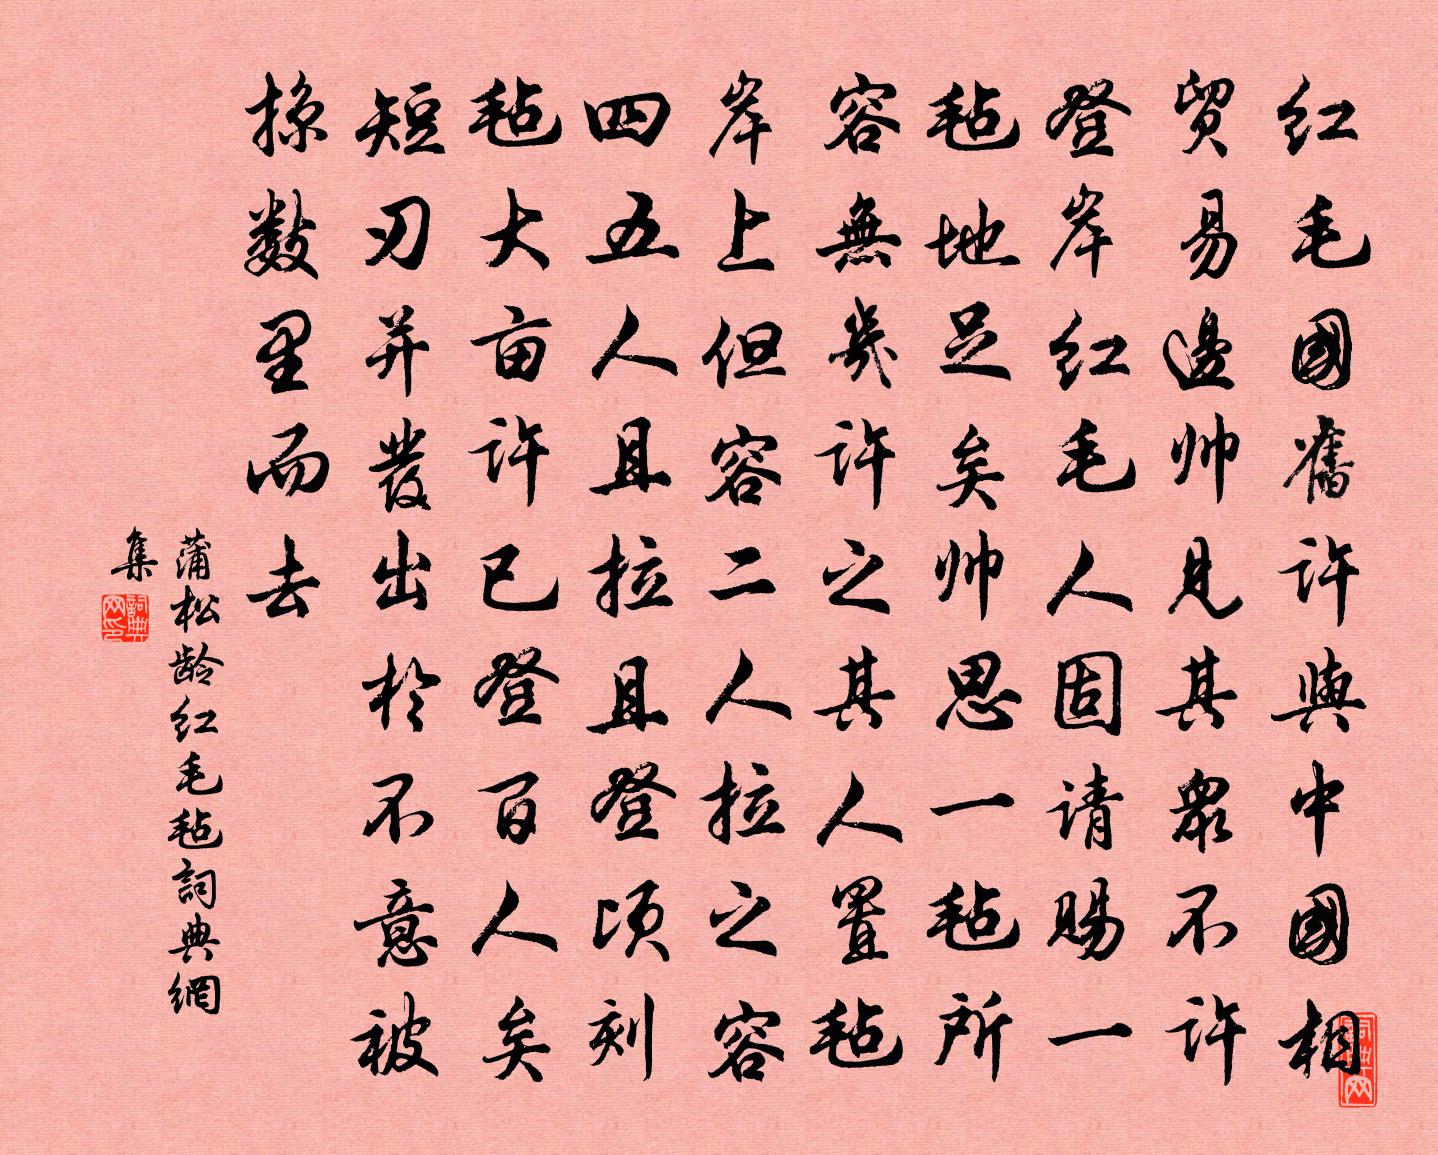 红毛國舊许與中國相
贸易邊帅見其眾不许
登岸红毛人固请赐一
毡地足矣帅思一毡所
容無幾许之其人置毡
岸上但容二人拉之容
四五人且拉且登顷刻
毡大亩许已登百人矣
短刃并發出於不意被
掠數里而去
蒲松龄红毛毡詞典網
集
詞典网印
词典网